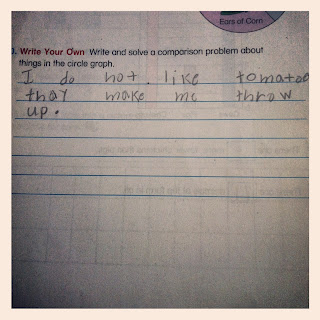 Ears of Corn
. Write Your Own Write and solve a comparison problem about
things in the circle graph.
I do not like tomatoe
thay make me throw
up.